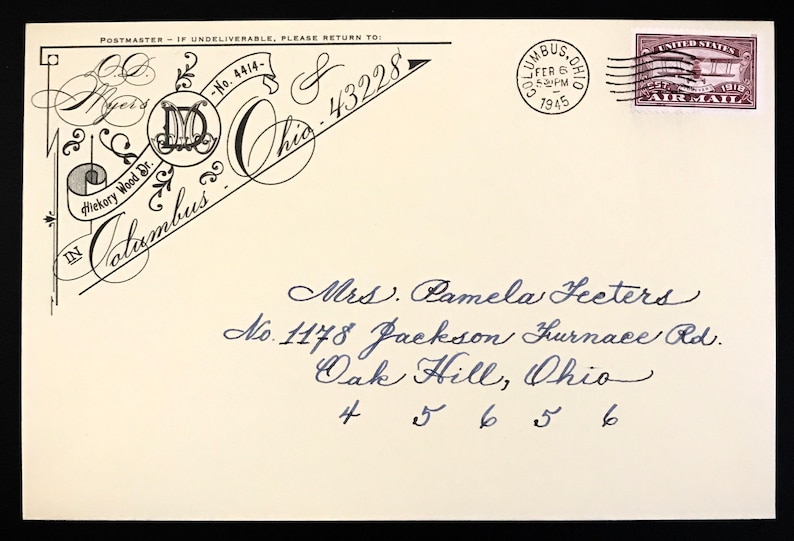 POSTMASTER – IF UNDELIVERABLE, PLEASE RETURN TO:
Myers
-No. 4414-
Hickory Wood Dr.
IN Columbus - Ohio - 43228
COLUMBUS, OHIO
FEB 6
1945
UNITED STATES
EST. 1918
AIR MAIL
Mrs. Pamela Teeters
No. 1178 Jackson Furnace Rd.
Oak Hill, Ohio
4 5 6 5 6